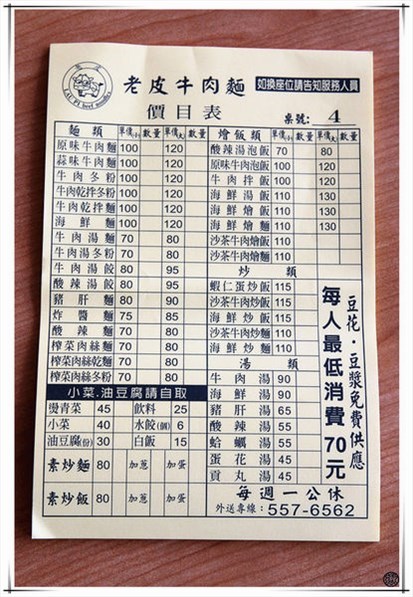 老皮牛肉麵 如換座位請告知服務人員
價目表 桌號: 4
麵類 單價(小) 數量 單價(大) 數量
原味牛肉麵 100 120
蒜味牛肉麵 100 120
牛肉冬粉 100 120
牛肉乾拌冬粉 100 120
牛肉乾拌麵 100 120
海鮮麵 100 120
牛肉湯麵 70 80
牛肉湯冬粉 70 80
牛肉湯餃 80 95
酸辣湯餃 80 95
豬肝麵 80 90
炸醬麵 75 85
酸辣麵 70 80
榨菜肉絲麵 70 80
榨菜肉絲乾麵 70 80
榨菜肉絲冬粉 70 80
小菜.油豆腐請自取
燙青菜 45 飲料 25
小菜 40 水餃(個) 6
油豆腐(份) 30 白飯 15
素炒麵 80 加蔥 加蛋
素炒飯 80 加蔥 加蛋
燴飯類 單價(小) 數量 單價(大) 數量
酸辣湯泡飯 70 80
原味牛肉泡飯 100 120
牛肉拌飯 100 120
海鮮湯飯 110 130
海鮮燴飯 110 130
海鮮燴麵 110 130
沙茶牛肉燴飯 110
沙茶牛肉燴麵 110
炒類
蝦仁蛋炒飯 115
沙茶牛肉炒飯 115
海鮮炒飯 115
沙茶牛肉炒麵 110
海鮮炒麵 110
湯類
牛肉湯 90
海鮮湯 90
豬肝湯 65
酸辣湯 55
蛤蠣湯 55
蛋花湯 45
貢丸湯 45
豆花.豆漿免費供應
每人最低消費70元
每週一公休
外送專線: 557-6562